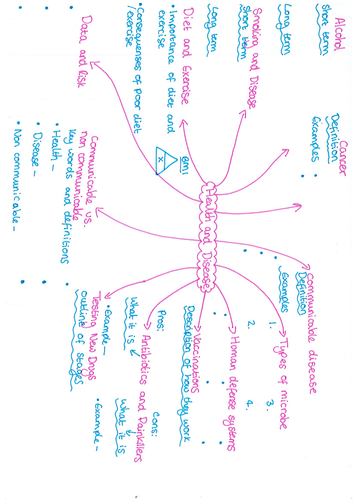 Alcohol
Short term
Long term
Cancer
Definition
Examples
Communicable disease
Definition
Examples
Types of microbe
1.
2.
3.
4.
Smoking and Disease
Short term
Long term
Human defense systems
Health and Disease
Vaccinations
Description of how they work
Diet and Exercise
Importance of diet and
exercise
Consequences of poor diet
/exercise
BMI
X
Antibiotics and Painkillers
What it is
Pros:
Cons:
What it is
Data and Risk
Communicable vs.
non communicable
key words and definitions
Health -
Disease -
Non communicable -
Testing New Drugs
outline of stages
Example -
Example -